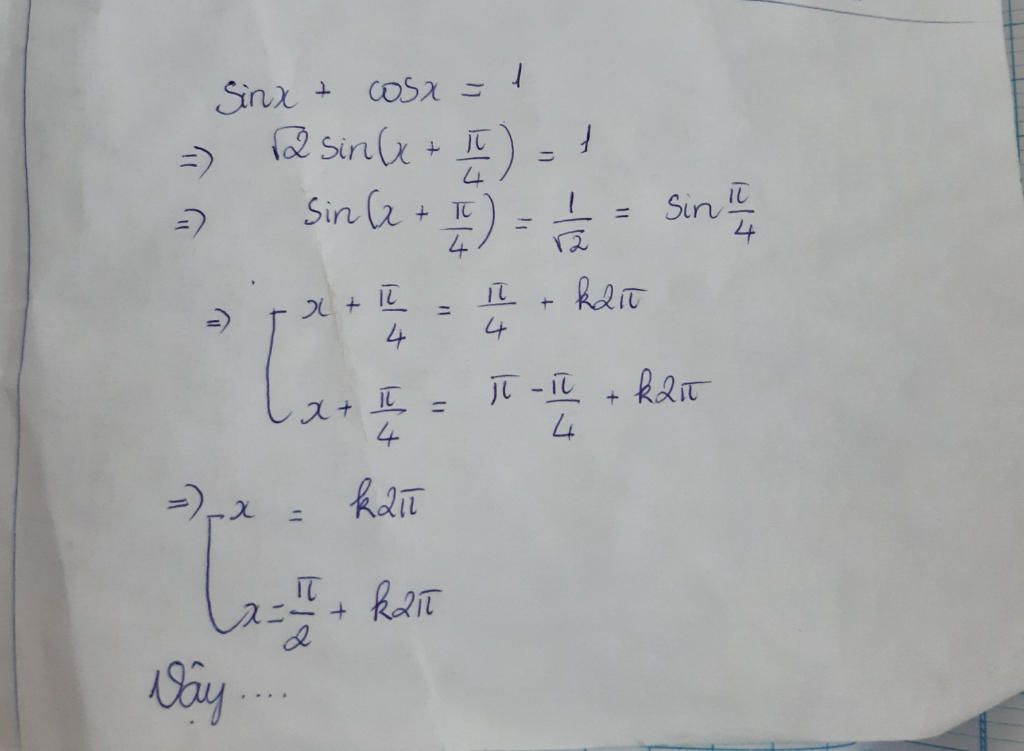 sinx + cosx = 1
=> √2 sin(x + π/4) = 1
=> sin(x + π/4) = 1/√2 = sin π/4
=> [ x + π/4 = π/4 + k2π
x + π/4 = π - π/4 + k2π
=> [ x = k2π
x = π/2 + k2π
Vậy ....